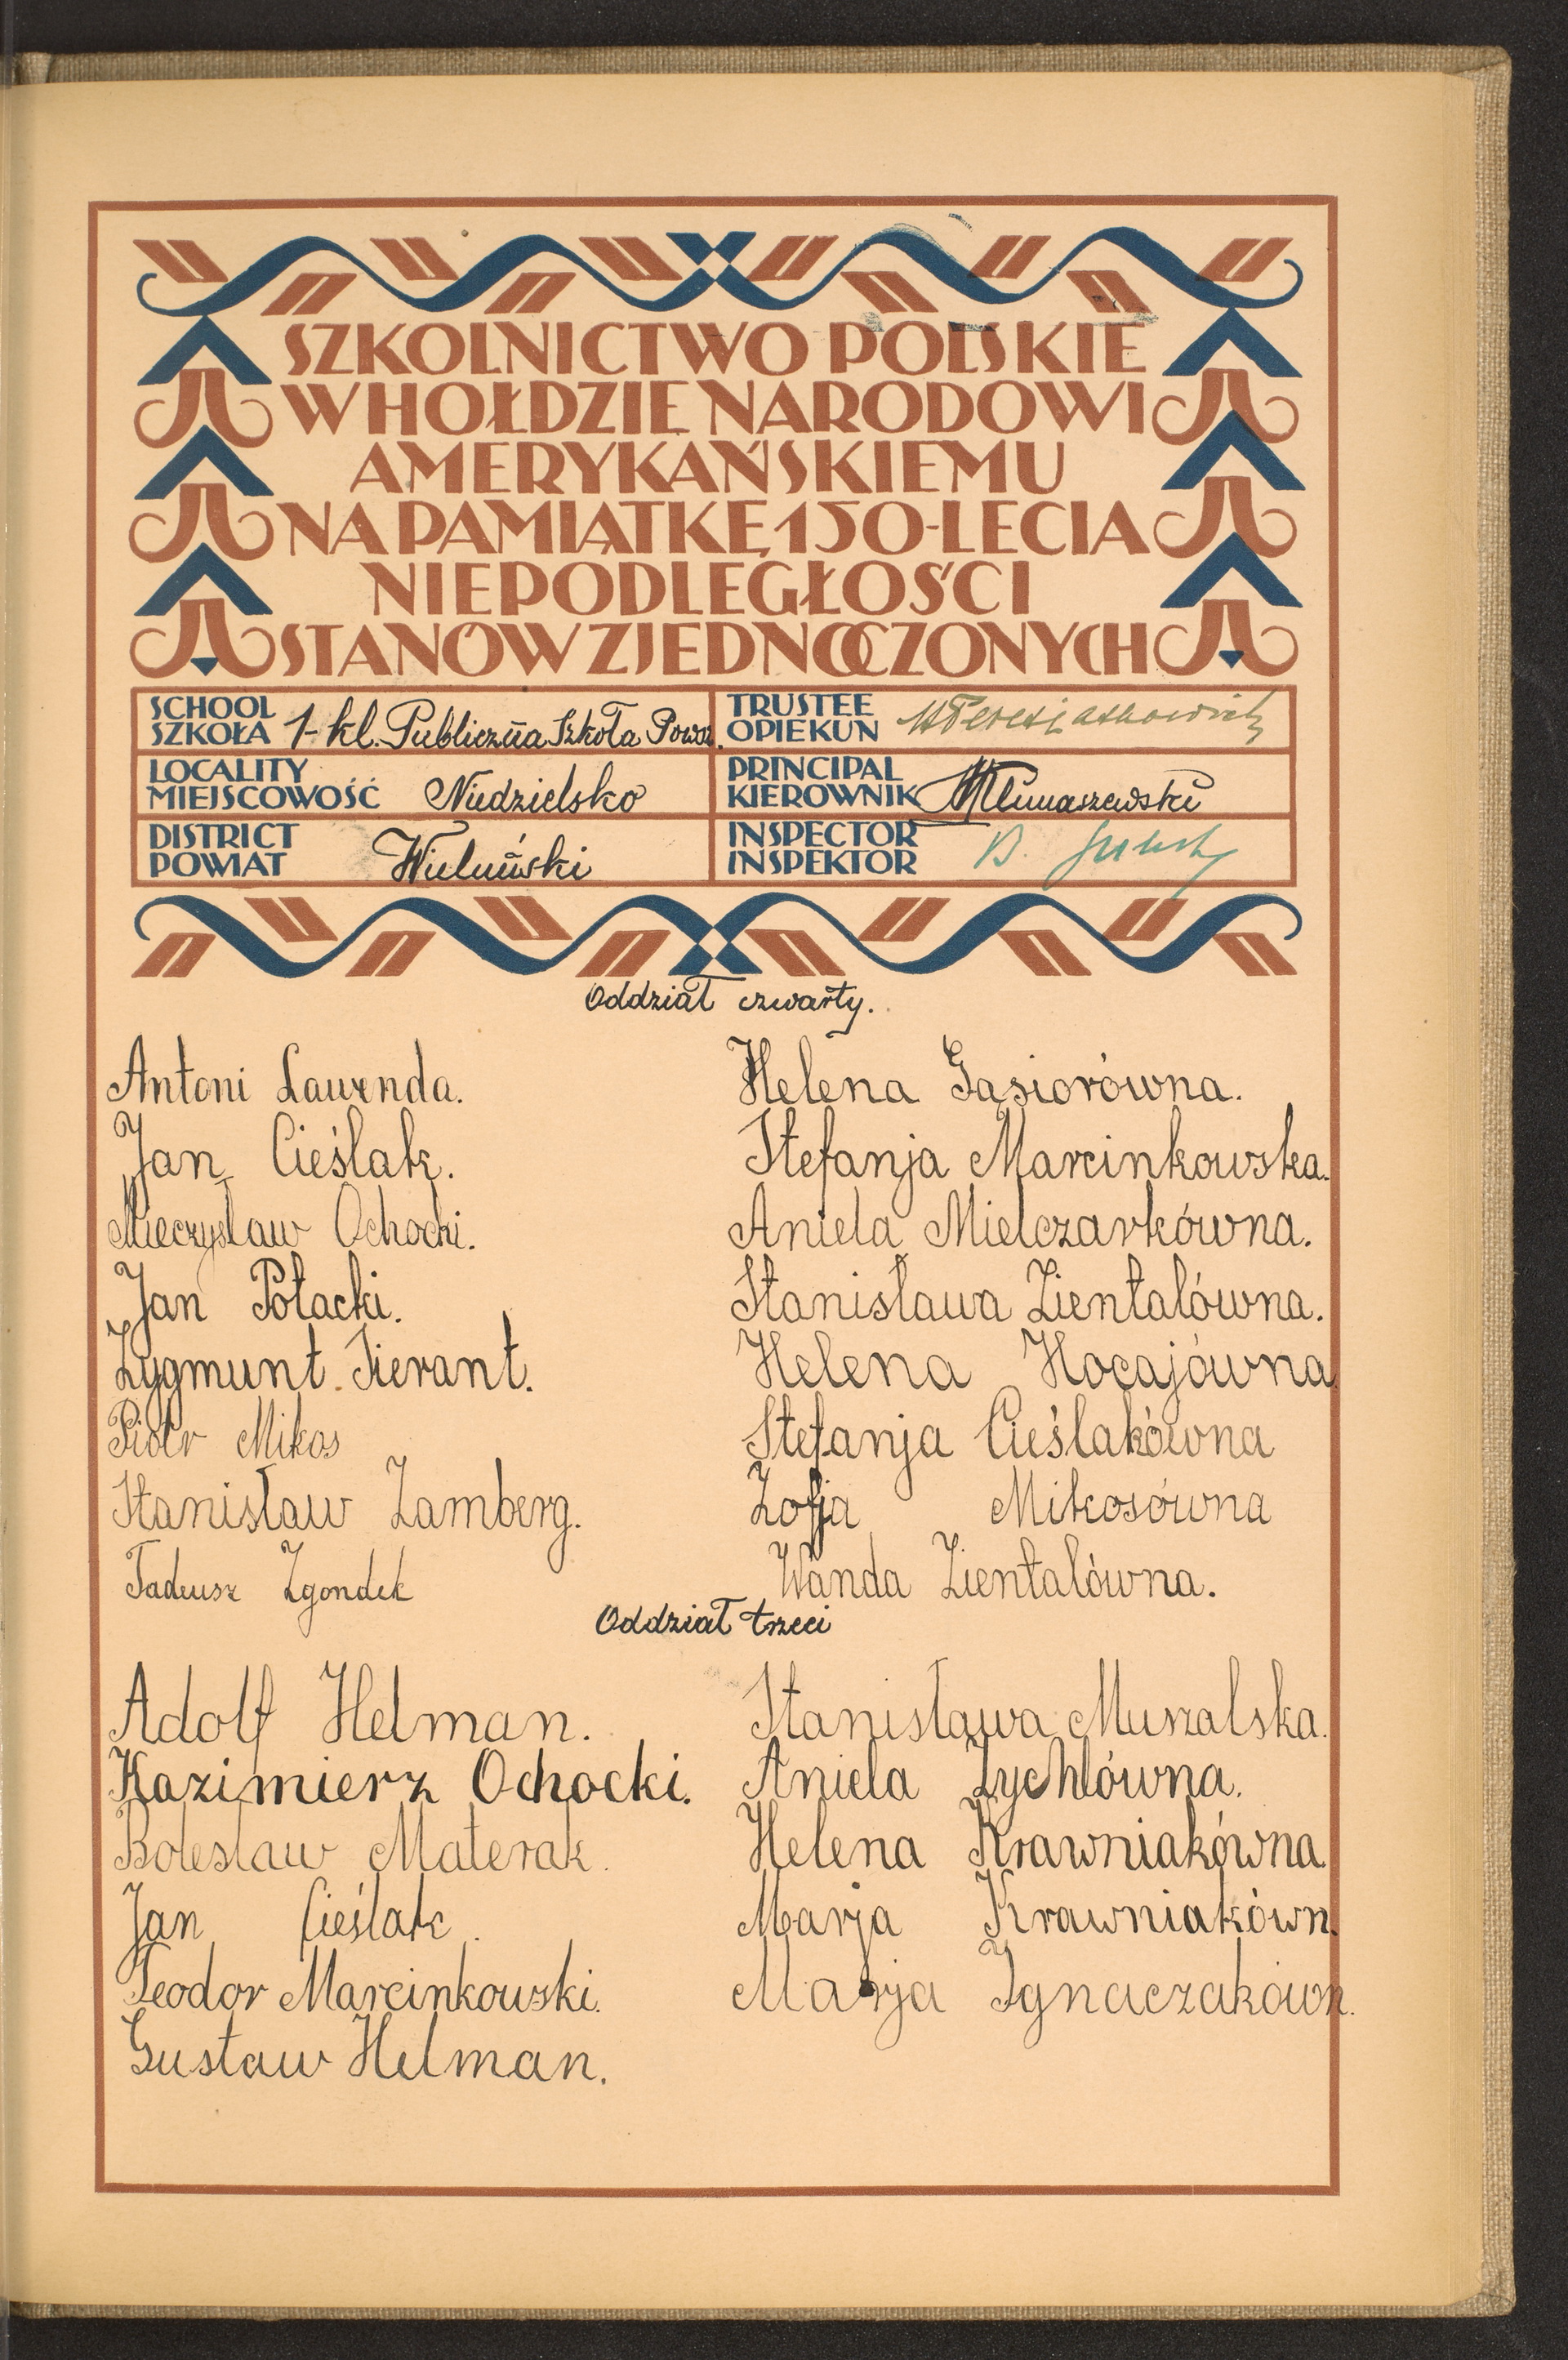 SZKOLNICTWO POLSKIE
W HOŁDZIE NARODOWI
AMERYKAŃSKIEMU
NA PAMIĄTKĘ 150-LECIA
NIEPODLEGŁOŚCI
STANÓW ZJEDNOCZONYCH
SCHOOL
SZKOŁA 1-kl. Publiczna Szkoła Powsz.
TRUSTEE
OPIEKUN
LOCALITY
MIEJSCOWOŚĆ Niedzielsko
PRINCIPAL
KIEROWNIK
DISTRICT
POWIAT Wieluński
INSPECTOR
INSPEKTOR B.
Oddział czwarty.
Antoni Lawenda.
Jan Cieślak.
Mieczysław Ochocki.
Jan Połacki.
Zygmunt Sierant.
Piotr Mikos
Stanisław Zamberg.
Tadeusz Zgondek
Helena Gąsiorówna.
Stefanja Marcinkowska.
Aniela Mielczarkówna.
Stanisława Zientalówna.
Helena Hocajówna
Stefanja Cieślakówna
Zofja Mikosówna
Wanda Zientalówna.
Oddział trzeci
Adolf Helman.
Kazimierz Ochocki.
Bolesław Materak.
Jan Cieślak.
Teodor Marcinkowski.
Gustaw Helman.
Stanisława Muszalska.
Aniela Zychlówna.
Helena Krawniakówna.
Marja Krawniakówn.
Marja Ignaczakówn.